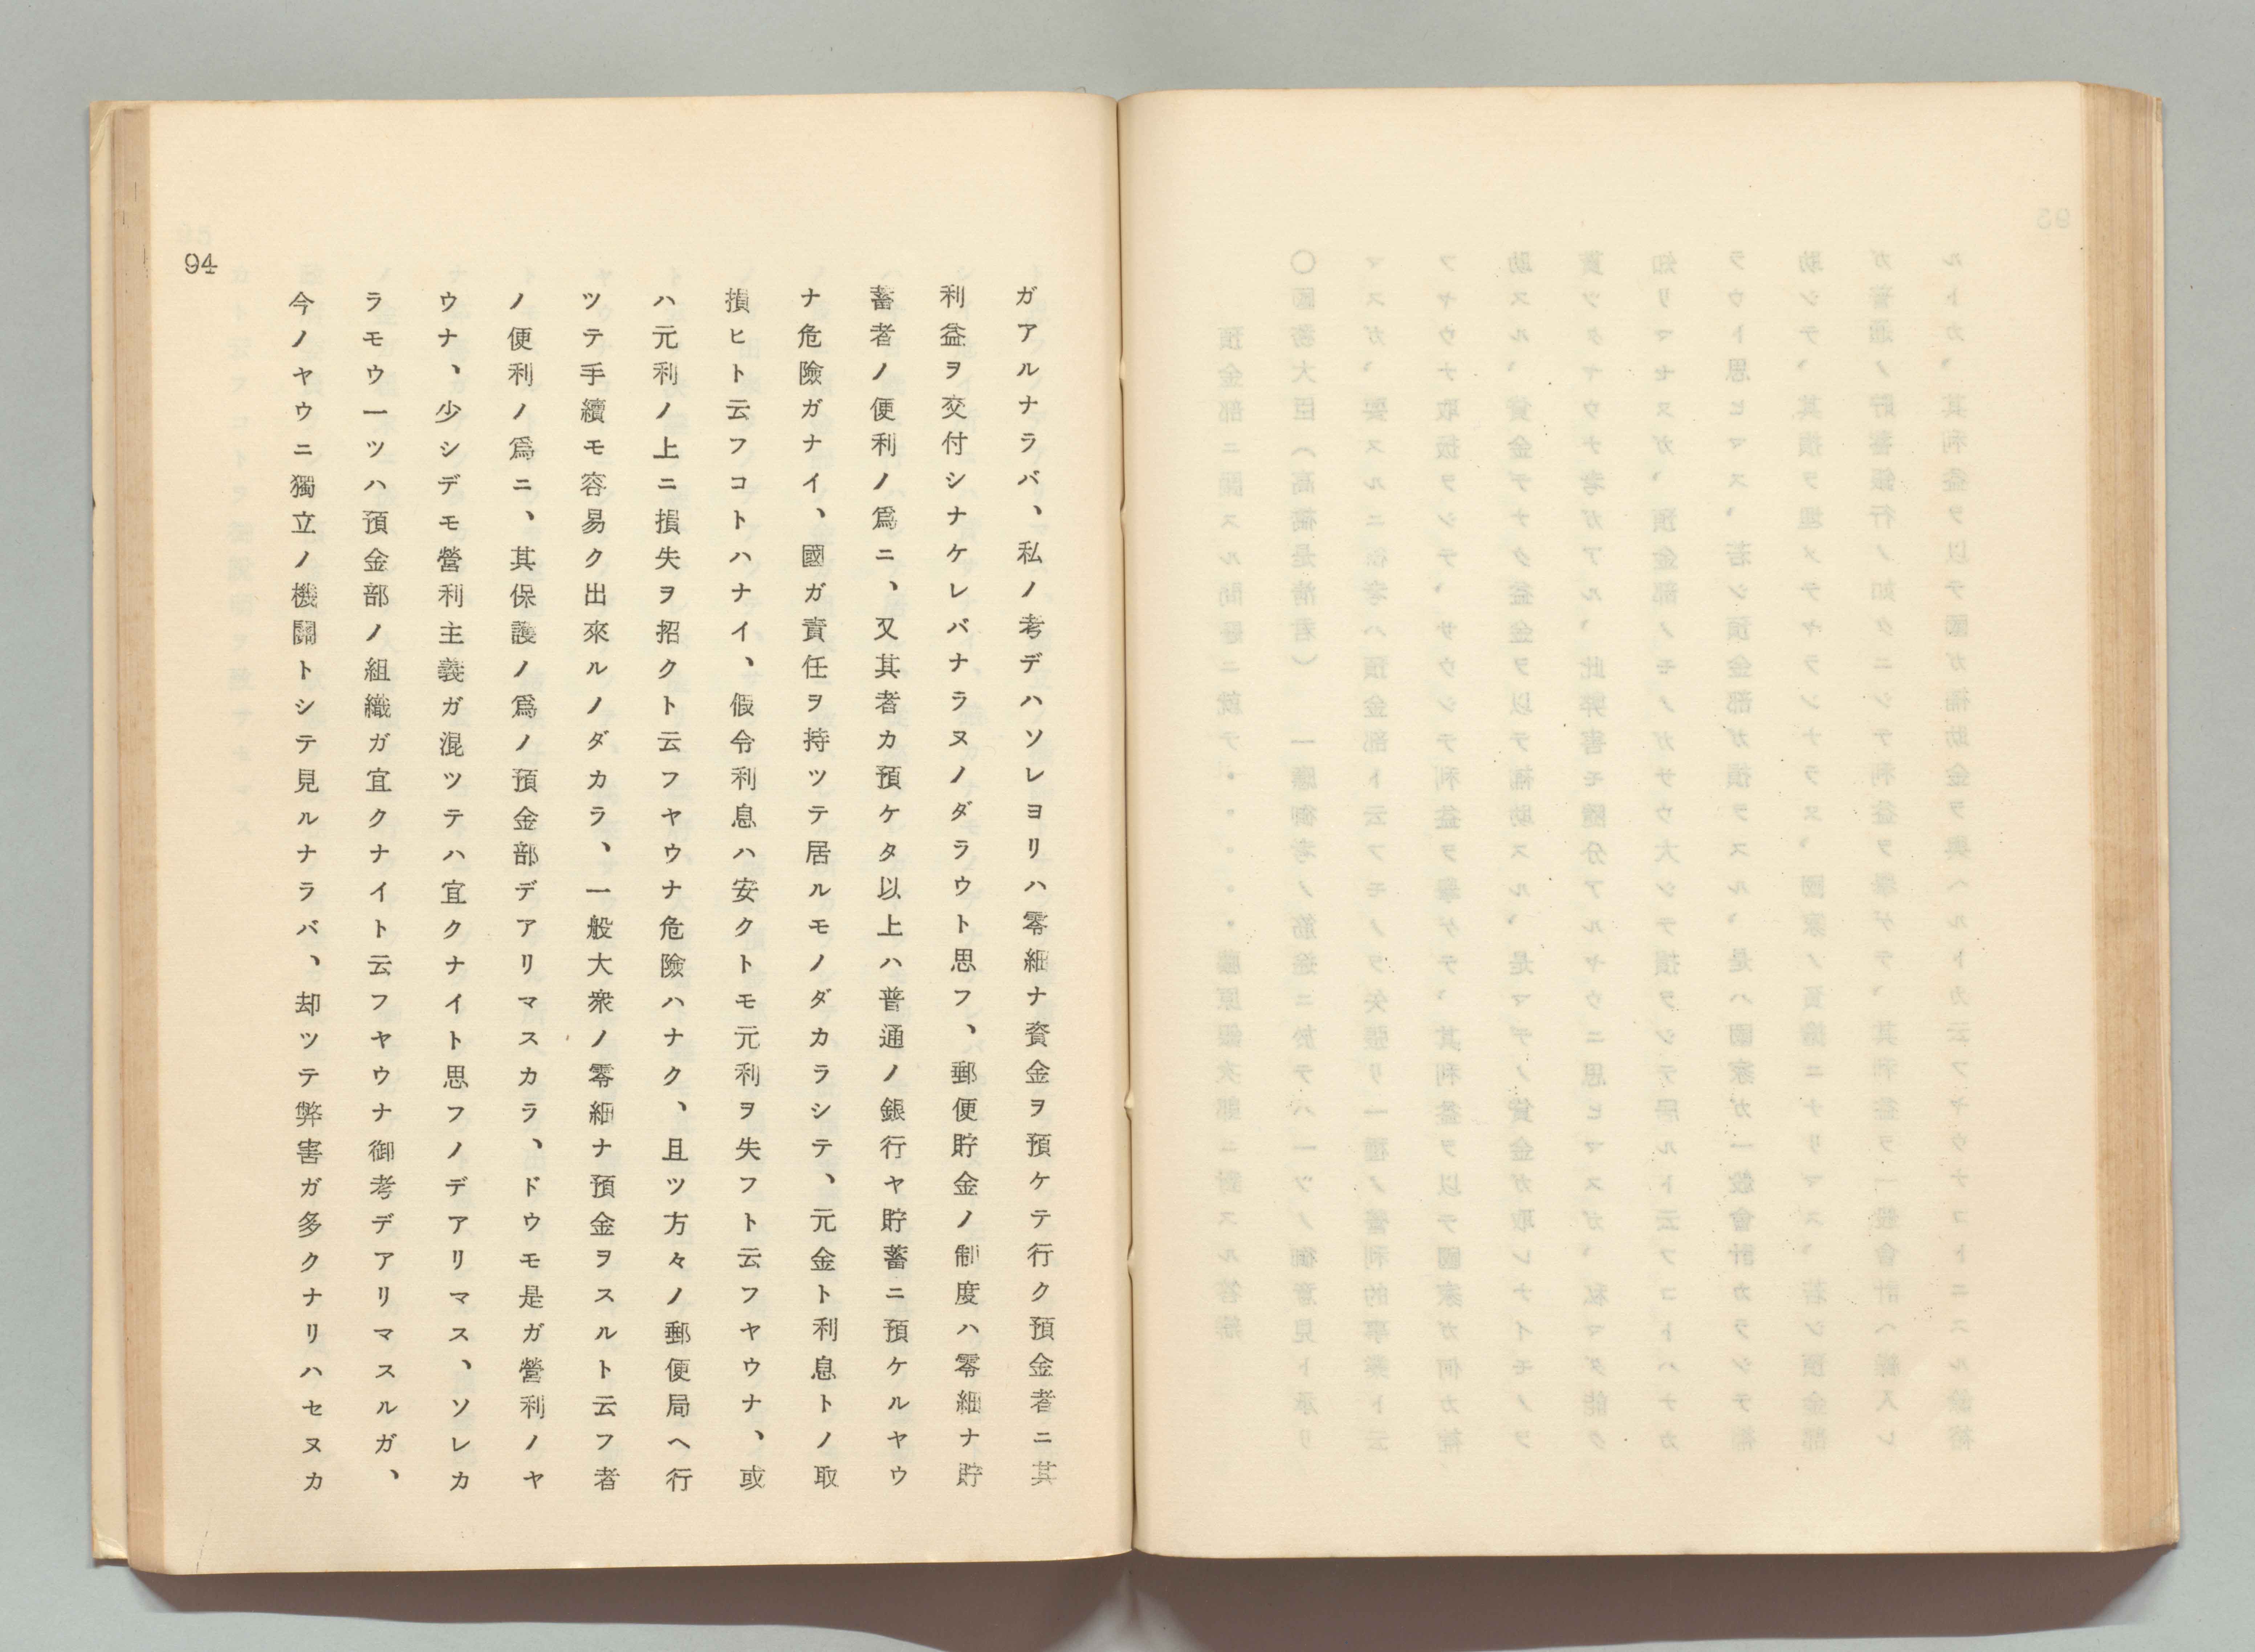 94
ガアルナラバ、私ノ考デハソレヨリハ零細ナ資金ヲ預ケテ行ク預金者ニ其
利益ヲ交付シナケレバナラヌノダラウト思フ、郵便貯金ノ制度ハ零細ナ貯
蓄者ノ便利ノ爲ニ、又其者カ預ケタ以上ハ普通ノ銀行ヤ貯蓄ニ預ケルヤウ
ナ危險ガナイ、國ガ責任ヲ持ツテ居ルモノダカラシテ、元金ト利息トノ取
損ヒト云フコトハナイ、假令利息ハ安クトモ元利ヲ失フト云フヤウナ、或
ハ元利ノ上ニ損失ヲ招クト云フヤウナ危險ハナク、且ツ方々ノ郵便局ヘ行
ツテ手續モ容易ク出來ルノダカラ、一般大衆ノ零細ナ預金ヲスルト云フ者
ノ便利ノ爲ニ、其保護ノ爲ノ預金部デアリマスカラ、ドウモ是ガ營利ノヤ
ウナ、少シデモ營利主義ガ混ツテハ宜クナイト思フノデアリマス、ソレカ
ラモウ一ツハ預金部ノ組織ガ宜クナイト云フヤウナ御考デアリマスルガ、
今ノヤウニ獨立ノ機關トシテ見ルナラバ、却ツテ弊害ガ多クナリハセヌカ